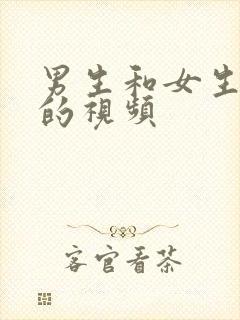 男生和女生
的視頻
客官看茶